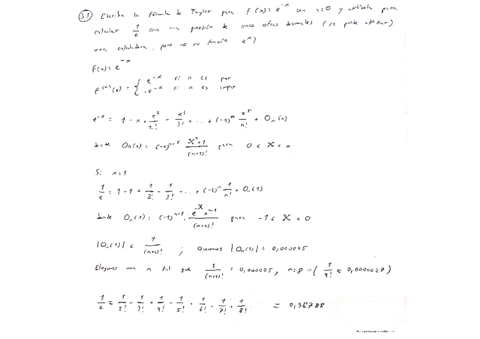 31) Escriba la fórmula de Taylor para f(x) = e^-x con n=0 y utilícela para
calcular 1/e con una precisión de cinco cifras decimales (se puede utilizar
una calculadora, pero no su función e^x)
f(x) = e^-x
f^(n)(x) = { e^-x si n es par
-e^-x si n es impar
e^-x = 1 - x + x²/2! - x³/3! + ... + (-1)^n x^n/n! + O_n(x)
donde O_n(x) = (-1)^n+1 X^n+1/(n+1)! para 0 < X < x
Si x=1
1/e = 1 - 1 + 1/2! - 1/3! + ... + (-1)^n 1/n! + O_n(1)
donde O_n(1) = (-1)^n+1 · e^-X x^n+1/(n+1)! para -1 < X < 0
|O_n(1)| < 1/(n+1)! ; |O_n(1)| = 0,000005
Elegimos un n tal que 1/(n+1)! < 0,000005, n=8 → (1/9! ≈ 0,0000027)
1/e = 1/2! - 1/3! + 1/4! - 1/5! + 1/6! - 1/7! + 1/8! ≈ 0,36788